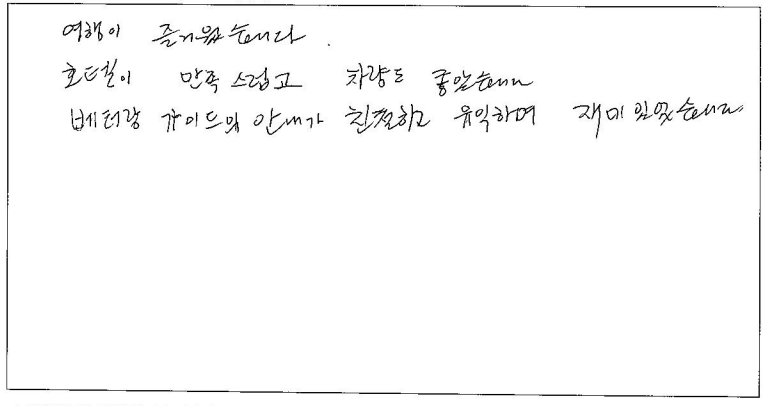 여행이 즐거웠습니다.
호텔이 만족스럽고 차량도 좋았습니다
베터랑 가이드의 안내가 친절하고 유익하며 재미있었습니다.